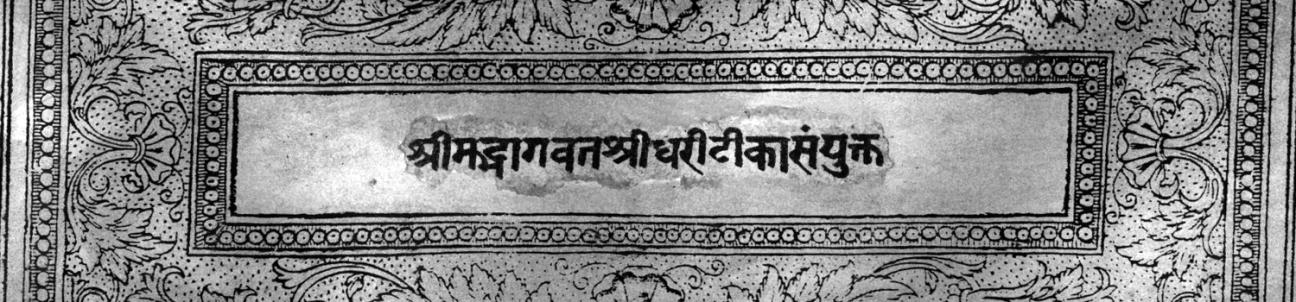 श्रीमद्भागवतश्रीधरीटीकासंयुक्त